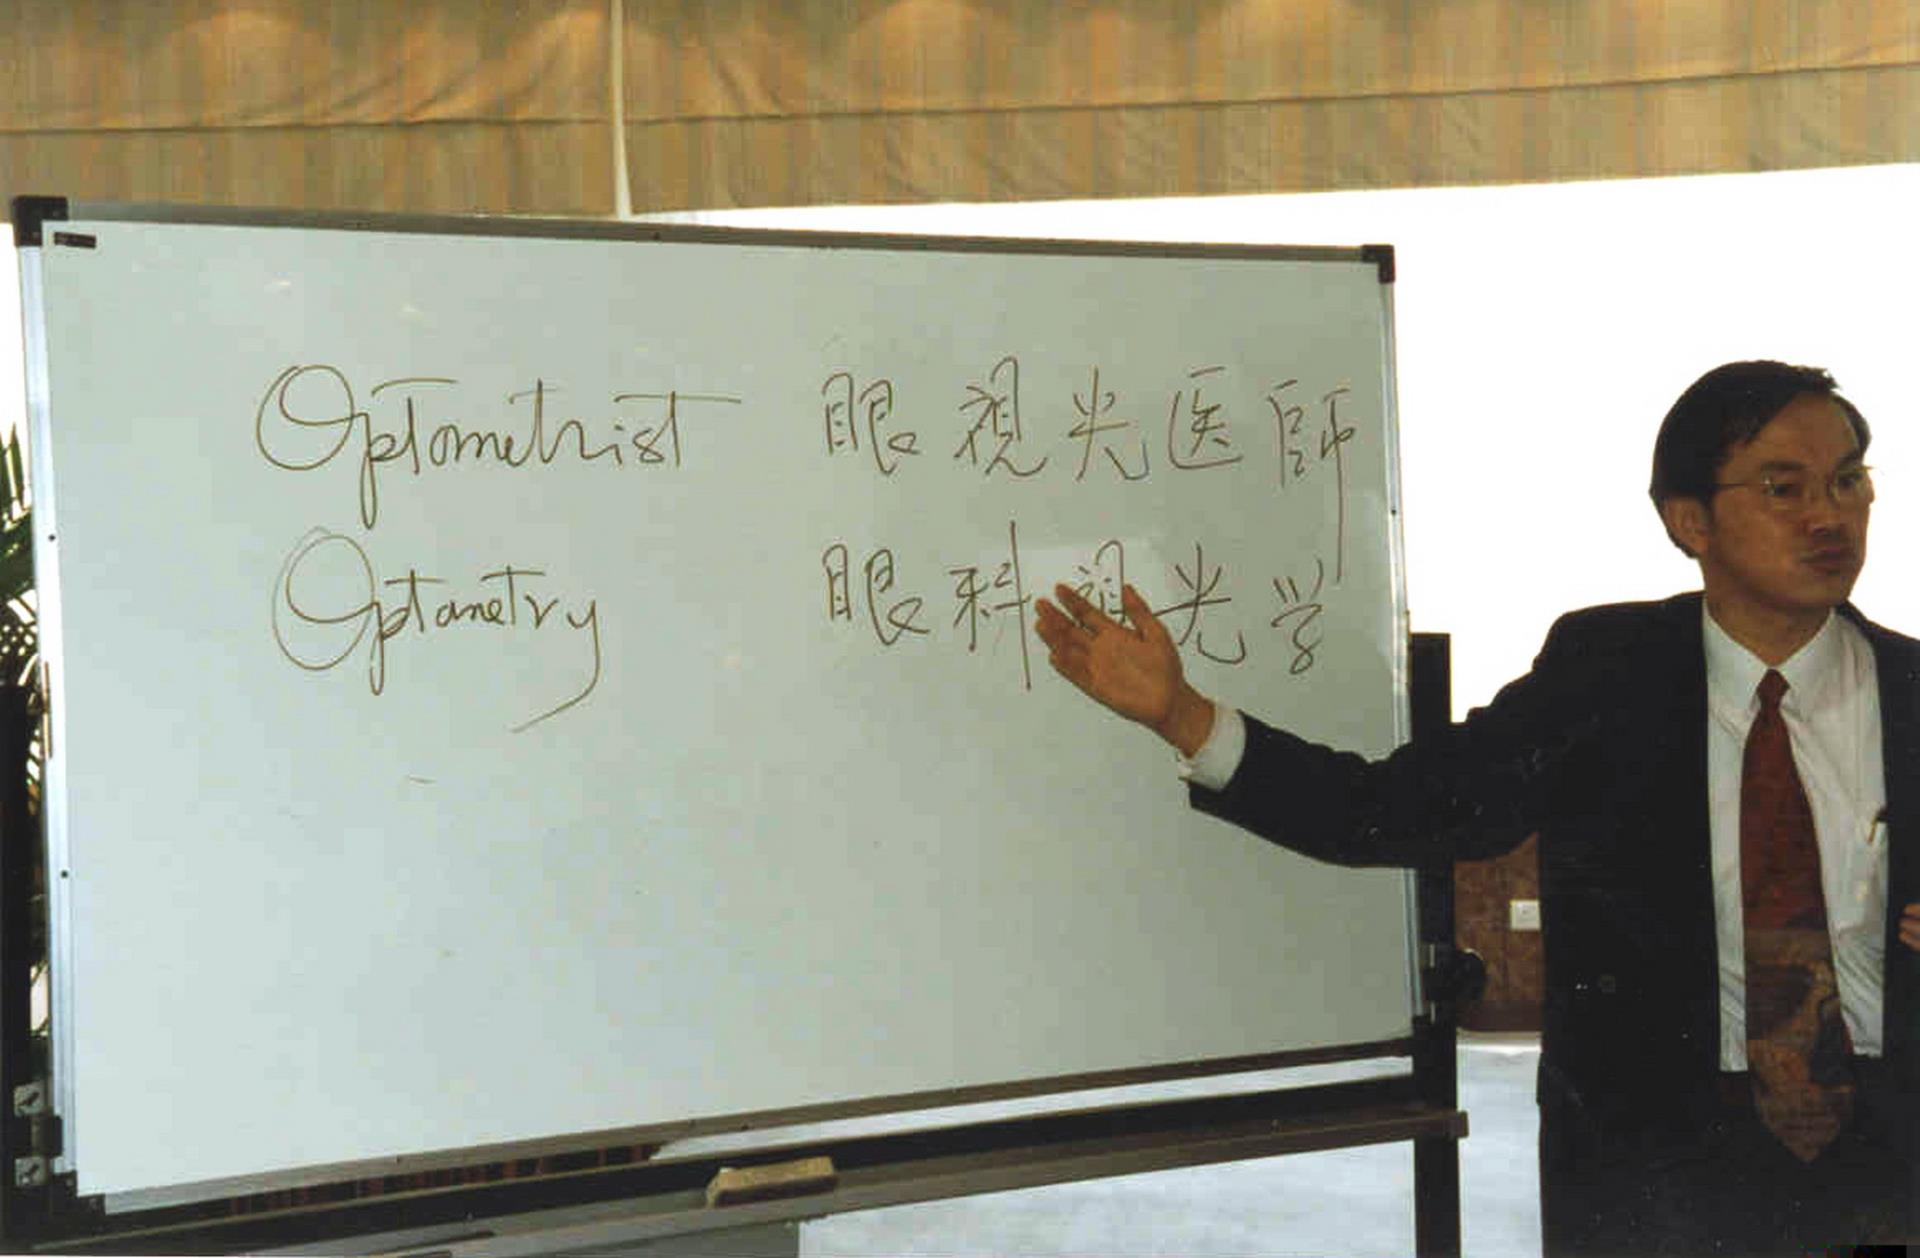 Optometrist 眼視光医師
Optometry 眼科視光学